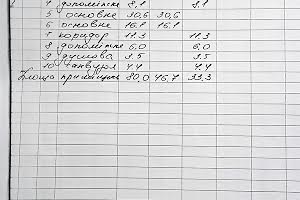 4 допоміжне 8,1 8.1
5 основне 30,6 30,6
6 основне 16,1 16,1
7 коридор 11.3 11.3
8 допоміжне 6,0 6,0
9 душова 3.5 3.5
10 тамбура 4.4 4.4
Площа приміщення 80,0 46,7 33,3